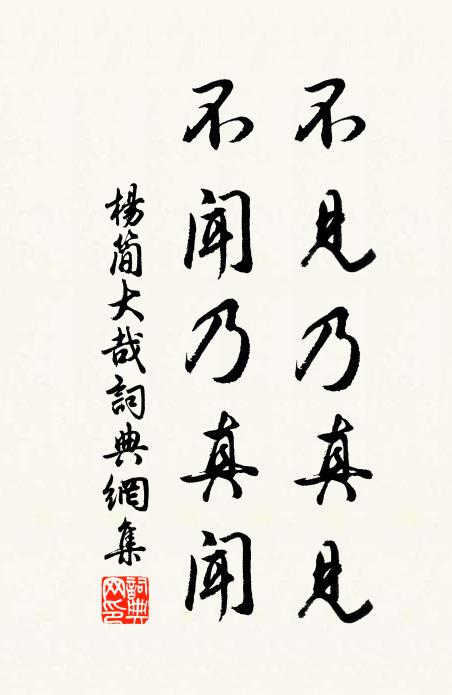 不見乃真見
不聞乃真聞
楊簡大哉詞典網集
詞典网印